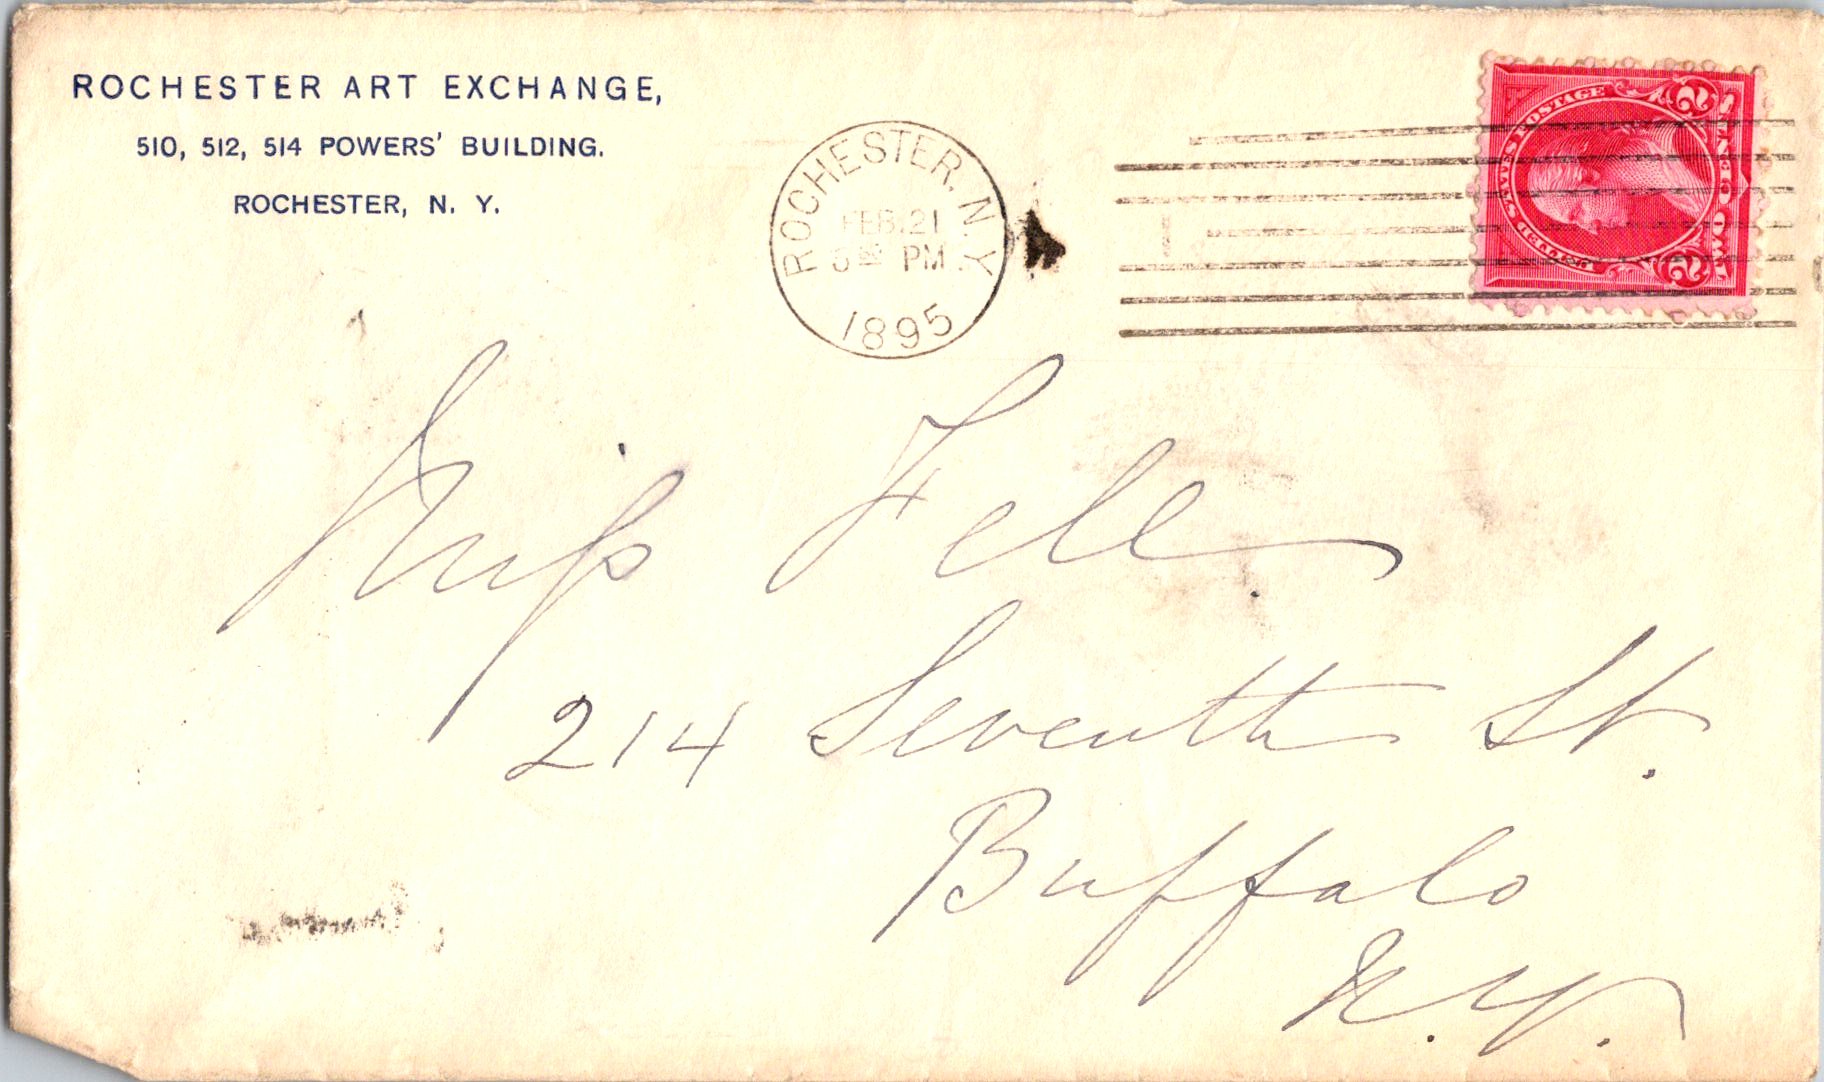 ROCHESTER ART EXCHANGE,
510, 512, 514 POWERS' BUILDING.
ROCHESTER, N. Y.
ROCHESTER, N.Y.
FEB 21
PM
1895
UNITED STATES POSTAGE
2 2
TWO CENTS
Miss Fell
214 Seventh St.
Buffalo
N.Y.